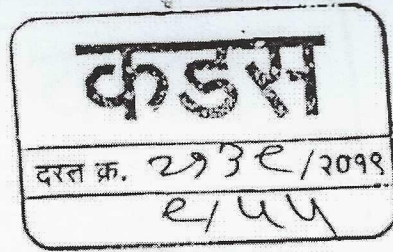 कडस
दस्त क्र. २१३९/२०१९
९/५५